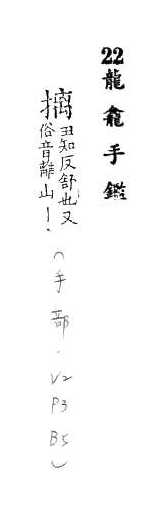 22 龍龕手鑑
摛丑知反舒也又
俗音離山丨・
(手部・V2 P3 B5)